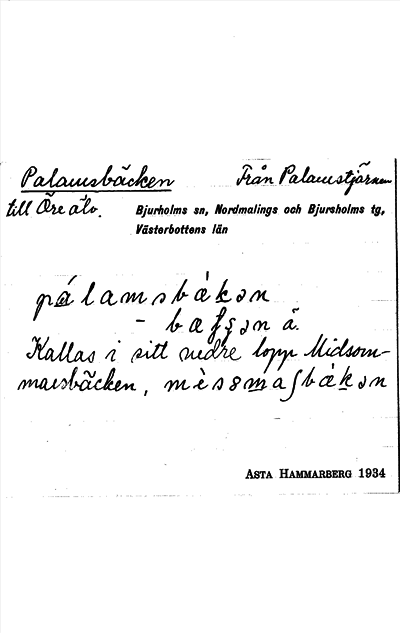 Palamsbäcken Från Palamstjärnen
till Öre älv.
Bjurholms sn, Nordmalings och Bjursholms tg,
Västerbottens län
pálamsbèkən
- bæ ən ä.
Kallas i sitt nedre lopp Midsom-
marsbäcken, 
ASTA HAMMARBERG 1934